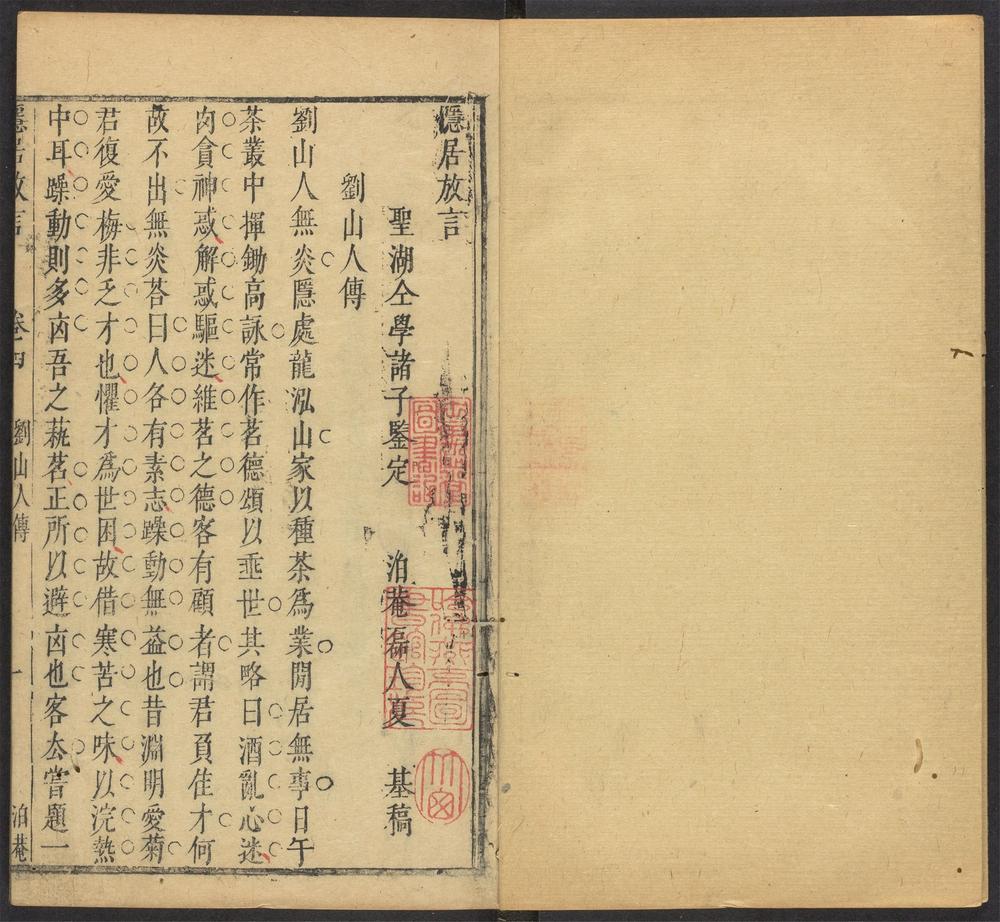 隱居放言
聖湖仝學諸子鑒定　泊菴磊人夏　基稿
劉山人傳
劉山人無炎隱處龍泓山家以種茶爲業閒居無事日午
茶叢中揮鋤高詠常作茗德頌以垂世其略曰酒亂心迷
肉貪神惑解惑驅迷維茗之德客有顧者謂君負隹才何
故不出無炎荅曰人各有素志躁動無益也昔淵明愛菊
君復愛梅非乏才也懼才爲世困故借寒苦之味以浣熱
中耳躁動則多凶吾之蓺茗正所以避凶也客去嘗題一
隱居放言　卷四　劉山人傳　一　泊菴